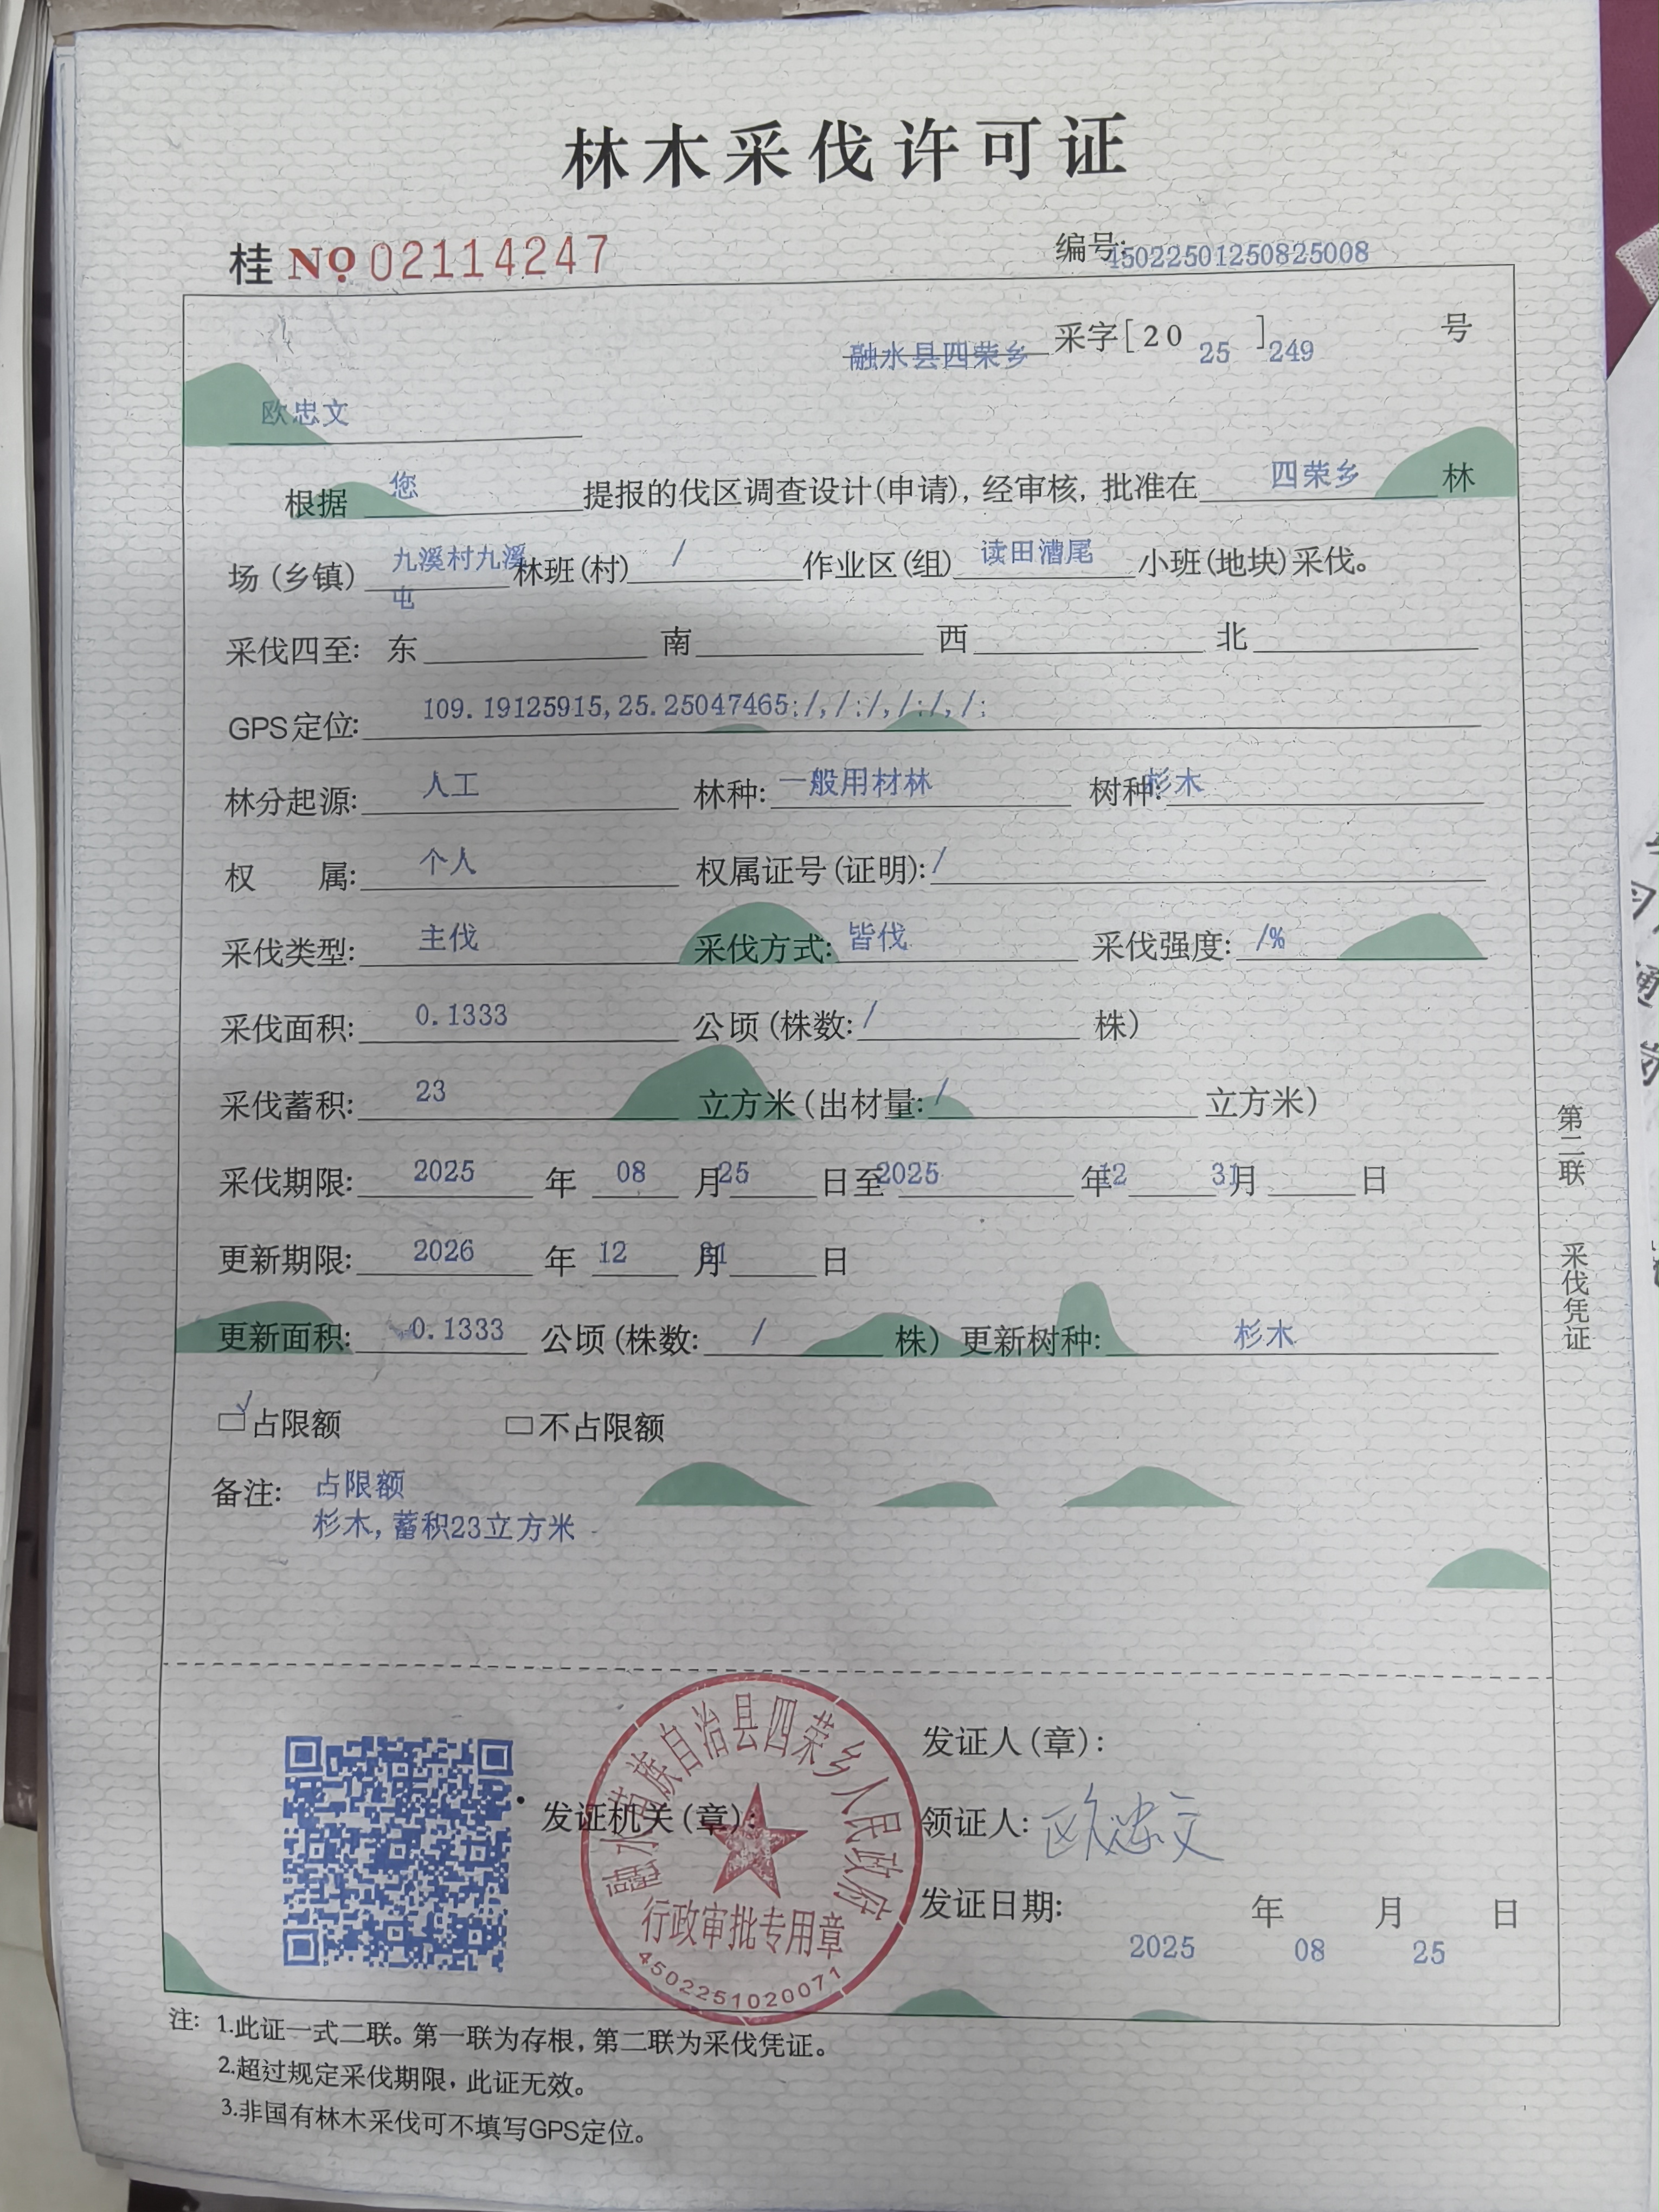 林木采伐许可证
桂 NO 02114247
编号:45022501250825008
融水县四荣乡 采字[2025]249 号
欧忠文
根据 您 提报的伐区调查设计(申请),经审核,批准在 四荣乡 林
场(乡镇) 九溪村九溪屯 林班(村) / 作业区(组) 读田漕尾 小班(地块)采伐。
采伐四至: 东 南 西 北
GPS定位: 109.19125915,25.25047465;/,/;/,/;/,/;
林分起源: 人工 林种: 一般用材林 树种: 杉木
权 属: 个人 权属证号(证明): /
采伐类型: 主伐 采伐方式: 皆伐 采伐强度: /%
采伐面积: 0.1333 公顷(株数: / 株)
采伐蓄积: 23 立方米(出材量: / 立方米)
采伐期限: 2025 年 08 月 25 日至 2025 年 12 月 31 日
更新期限: 2026 年 12 月 31 日
更新面积: 0.1333 公顷(株数: / 株) 更新树种: 杉木
☑占限额 □不占限额
备注: 占限额
杉木,蓄积23立方米
发证机关(章):
融水苗族自治县四荣乡人民政府
行政审批专用章
4502251020071
发证人(章):
领证人: 欧忠文
发证日期: 2025 年 08 月 25 日
第二联 采伐凭证
注: 1.此证一式二联。第一联为存根,第二联为采伐凭证。
2.超过规定采伐期限,此证无效。
3.非国有林木采伐可不填写GPS定位。